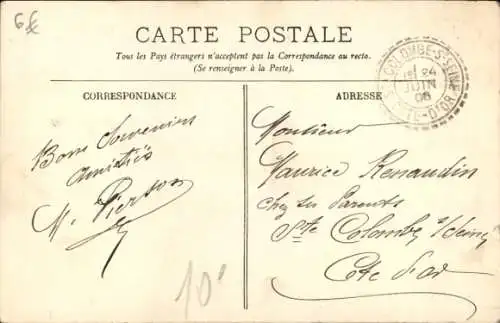 6€
CARTE POSTALE
Tous les Pays étrangers n'acceptent pas la Correspondance au recto.
(Se renseigner à la Poste.)
CORRESPONDANCE
ADRESSE
COLOMBE-S-SEINE
24
JUIN
06
CÔTE-D'OR
Bons Souvenirs
Amitiés
M. Pierson
10'
Monsieur
Maurice Renaudin
chez ses Parents
Ste Colombe s/Seine
Côte d'or